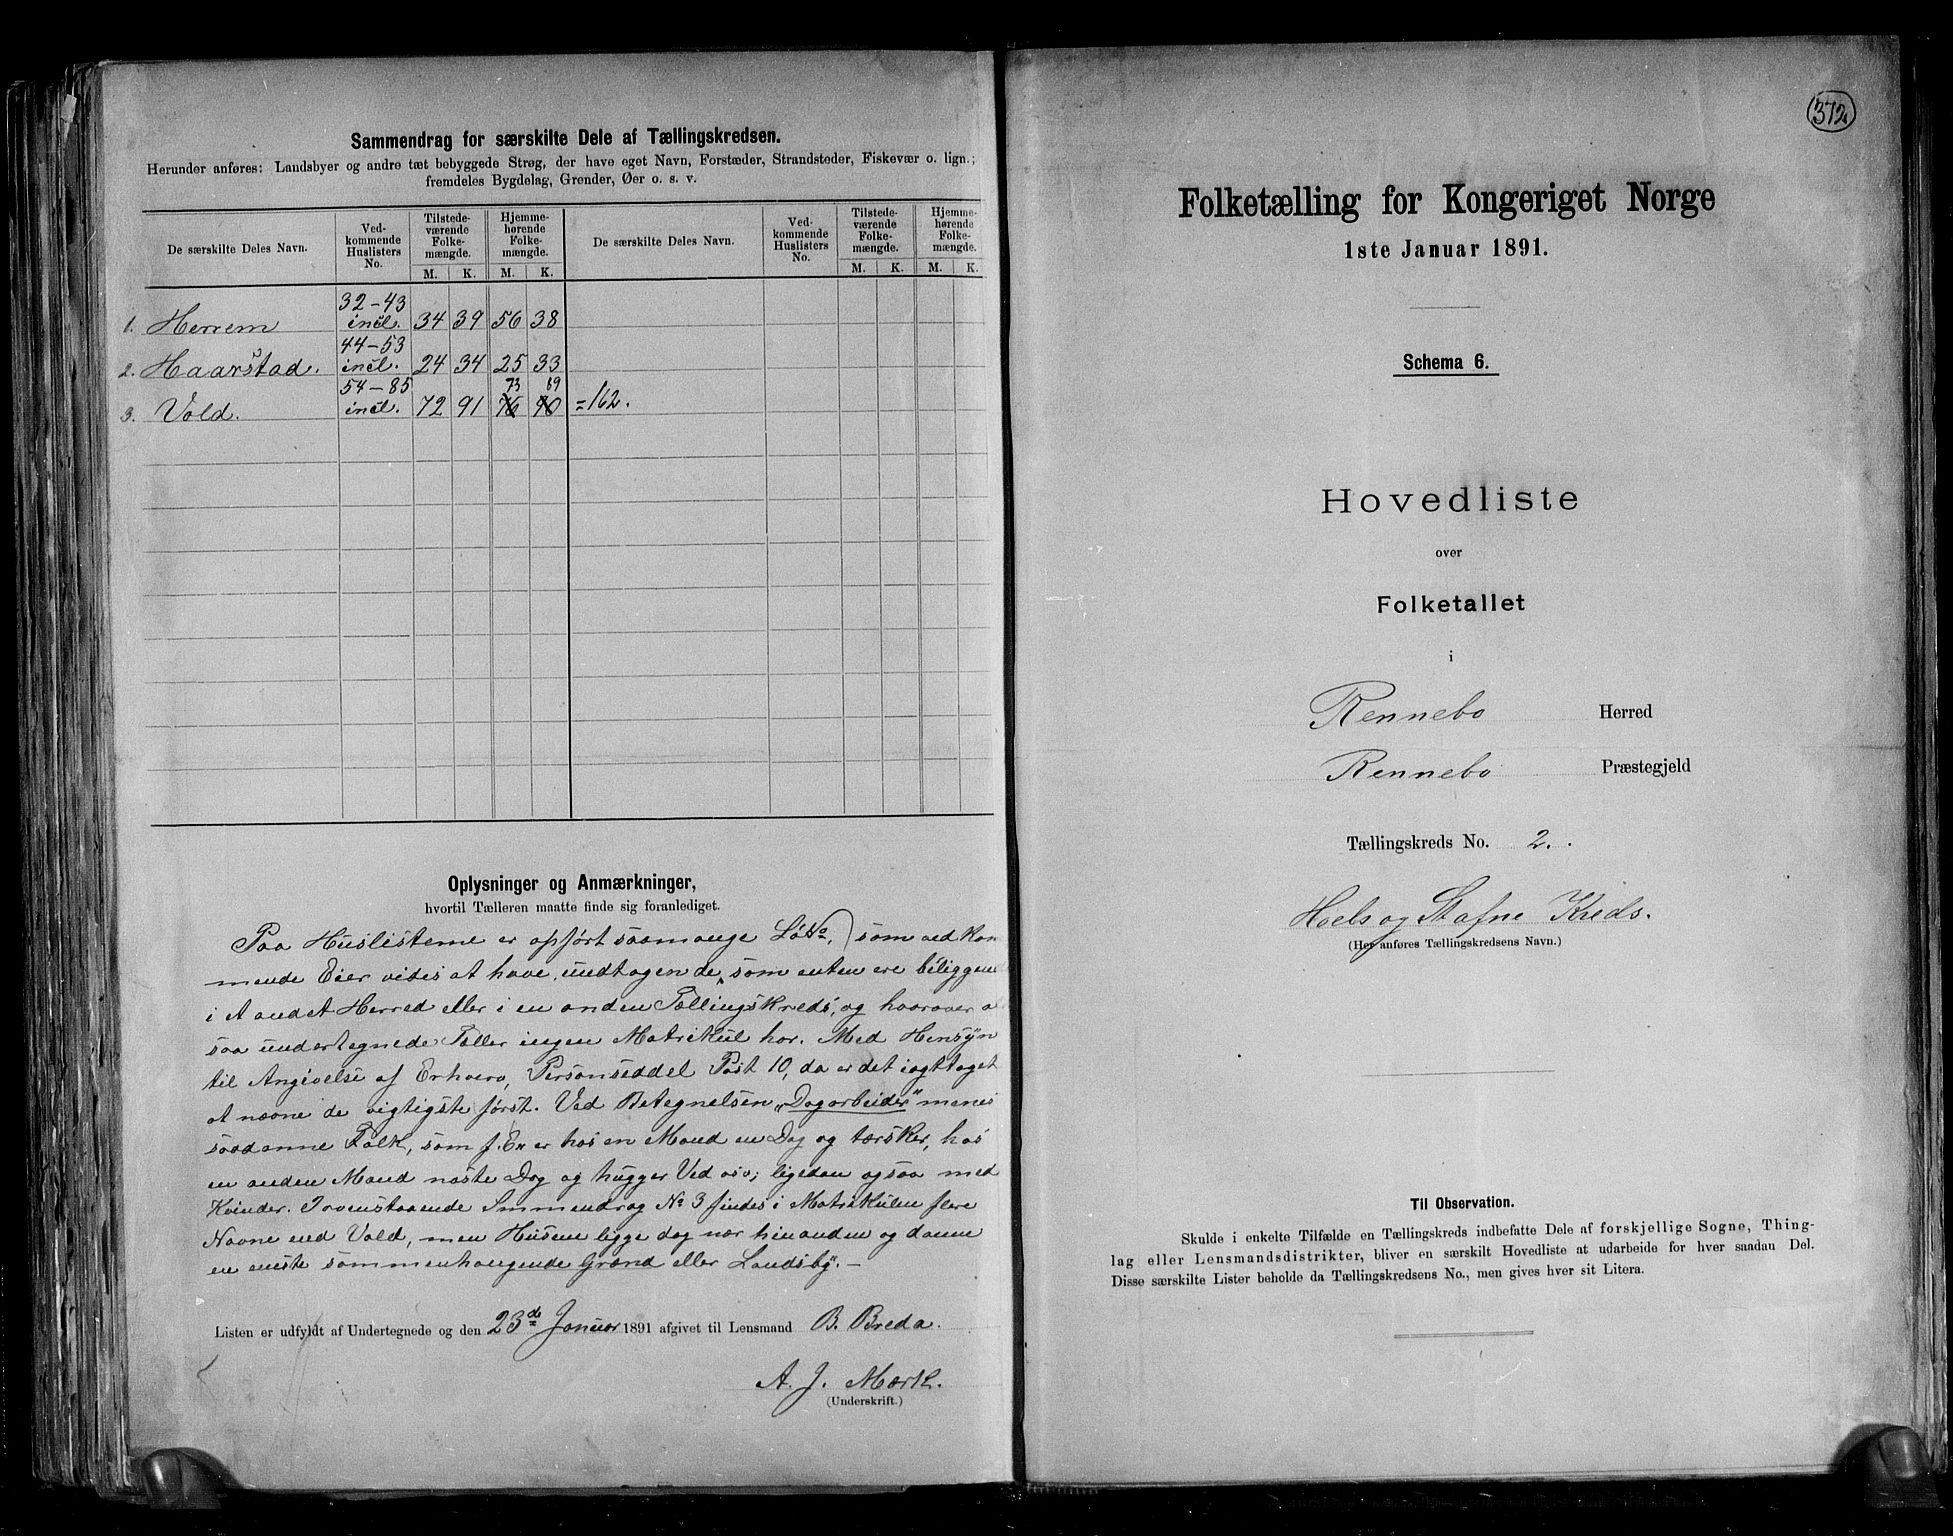 Sammendrag for særskilte Dele af Tællingskredsen.
Herunder anføres: Landsbyer og andre tæt bebyggede Strøg, der have eget Navn, Forstæder, Strandsteder, Fiskevær o. lign.;
fremdeles Bygdelag, Grender, Øer o. s. v.
De særskilte Deles Navn. Ved-kommende Huslisters No. Tilstede-værende Folke-mængde. Hjemme-hørende Folke-mængde. De særskilte Deles Navn. Ved-kommende Huslisters No. Tilstede-værende Folke-mængde. Hjemme-hørende Folke-mængde.
M. K. M. K. M. K. M. K.
1. Herrem 32-43 incl. 34 39 56 38
2. Haarstad. 44-53 incl. 24 34 25 33
73 89
3. Vold. 54-85 incl. 72 91 76 90 =162.
Oplysninger og Anmærkninger,
hvortil Tælleren maatte finde sig foranlediget.
Paa Huslisterne er opført saamange LøNo, som vedkom
mende Eier vides at have, undtagen de, som enten ere biliggend
i et andet Herred eller i en anden Tællingskreds, og hvorover
saa undertegnede Tæller ingen Matrikul har. Med Hensyn
til Angivelse af Erhverv, Personseddel Post 10, da er det iagttaget
at nævne de vigtigste først. Ved Betegnelsen "Dagarbeider" menes
saadanne Folk, som f. Ex er hos en Mand en Dag og tærsker, hos
en anden Mand næste Dag og hugger Ved osv; ligedan ogsaa med
Kvinder. I ovenstaaende Smmendrag No 3 findes i Matrikulen flere
Navne end Vold, men Husene ligge dog nær hinanden og danne
en eneste sammenhængende Grænd eller Landsby. —
Listen er udfyldt af Undertegnede og den 23de Januar 1891 afgivet til Lensmand B. Breda.
A. J. Mærk.
(Underskrift.)
372
Folketælling for Kongeriget Norge
1ste Januar 1891.
Schema 6.
Hovedliste
over
Folketallet
i
Rennebo Herred
Rennebo Præstegjeld
Tællingskreds No. 2.
Hoels og Stafne Kreds.
(Her anføres Tællingskredsens Navn.)
Til Observation.
Skulde i enkelte Tilfælde en Tællingskreds indbefatte Dele af forskjellige Sogne, Thing-
lag eller Lensmandsdistrikter, bliver en særskilt Hovedliste at udarbeide for hver saadan Del.
Disse særskilte Lister beholde da Tællingskredsens No., men gives hver sit Litera.